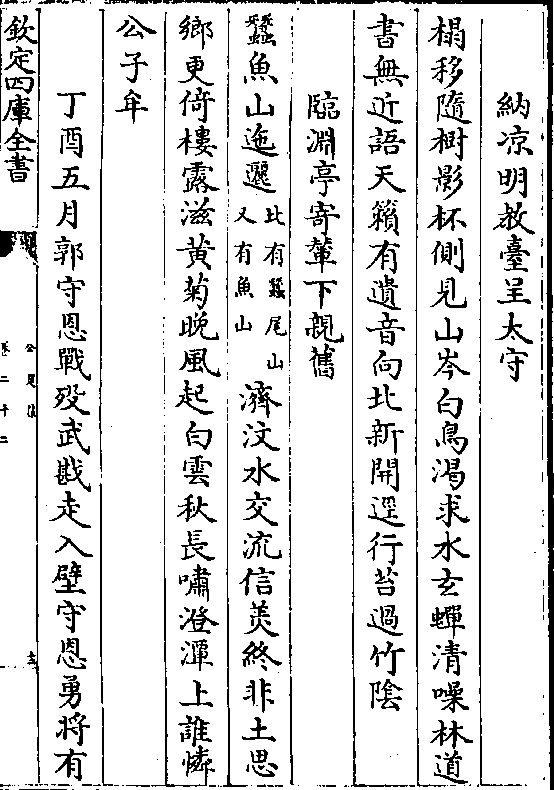 納凉明教臺呈太守
榻移隨樹影杯側見山岑白鳥渴求水玄蟬清噪林道
書無近語天籟有遺音向北新開逕行苔過竹陰
臨淵亭寄輦下親舊
蠶魚山迤邐此有蠶尾山又有魚山濟汶水交流信美終非土思
鄉更倚樓露滋黄菊晚風起白雲秋長嘯澄潭上誰憐
公子牟
丁酉五月郭守恩戰歿武戡走入壁守恩勇將有
欽定四庫全書
卷二十二